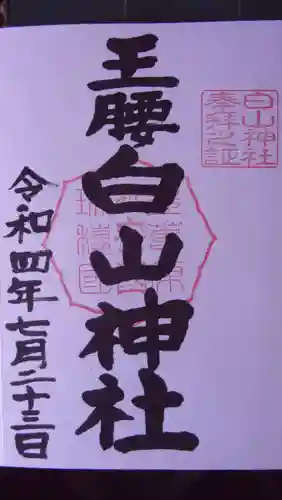 白山神社
奉拝之証
王腰
白山神社
令和四年七月二十三日